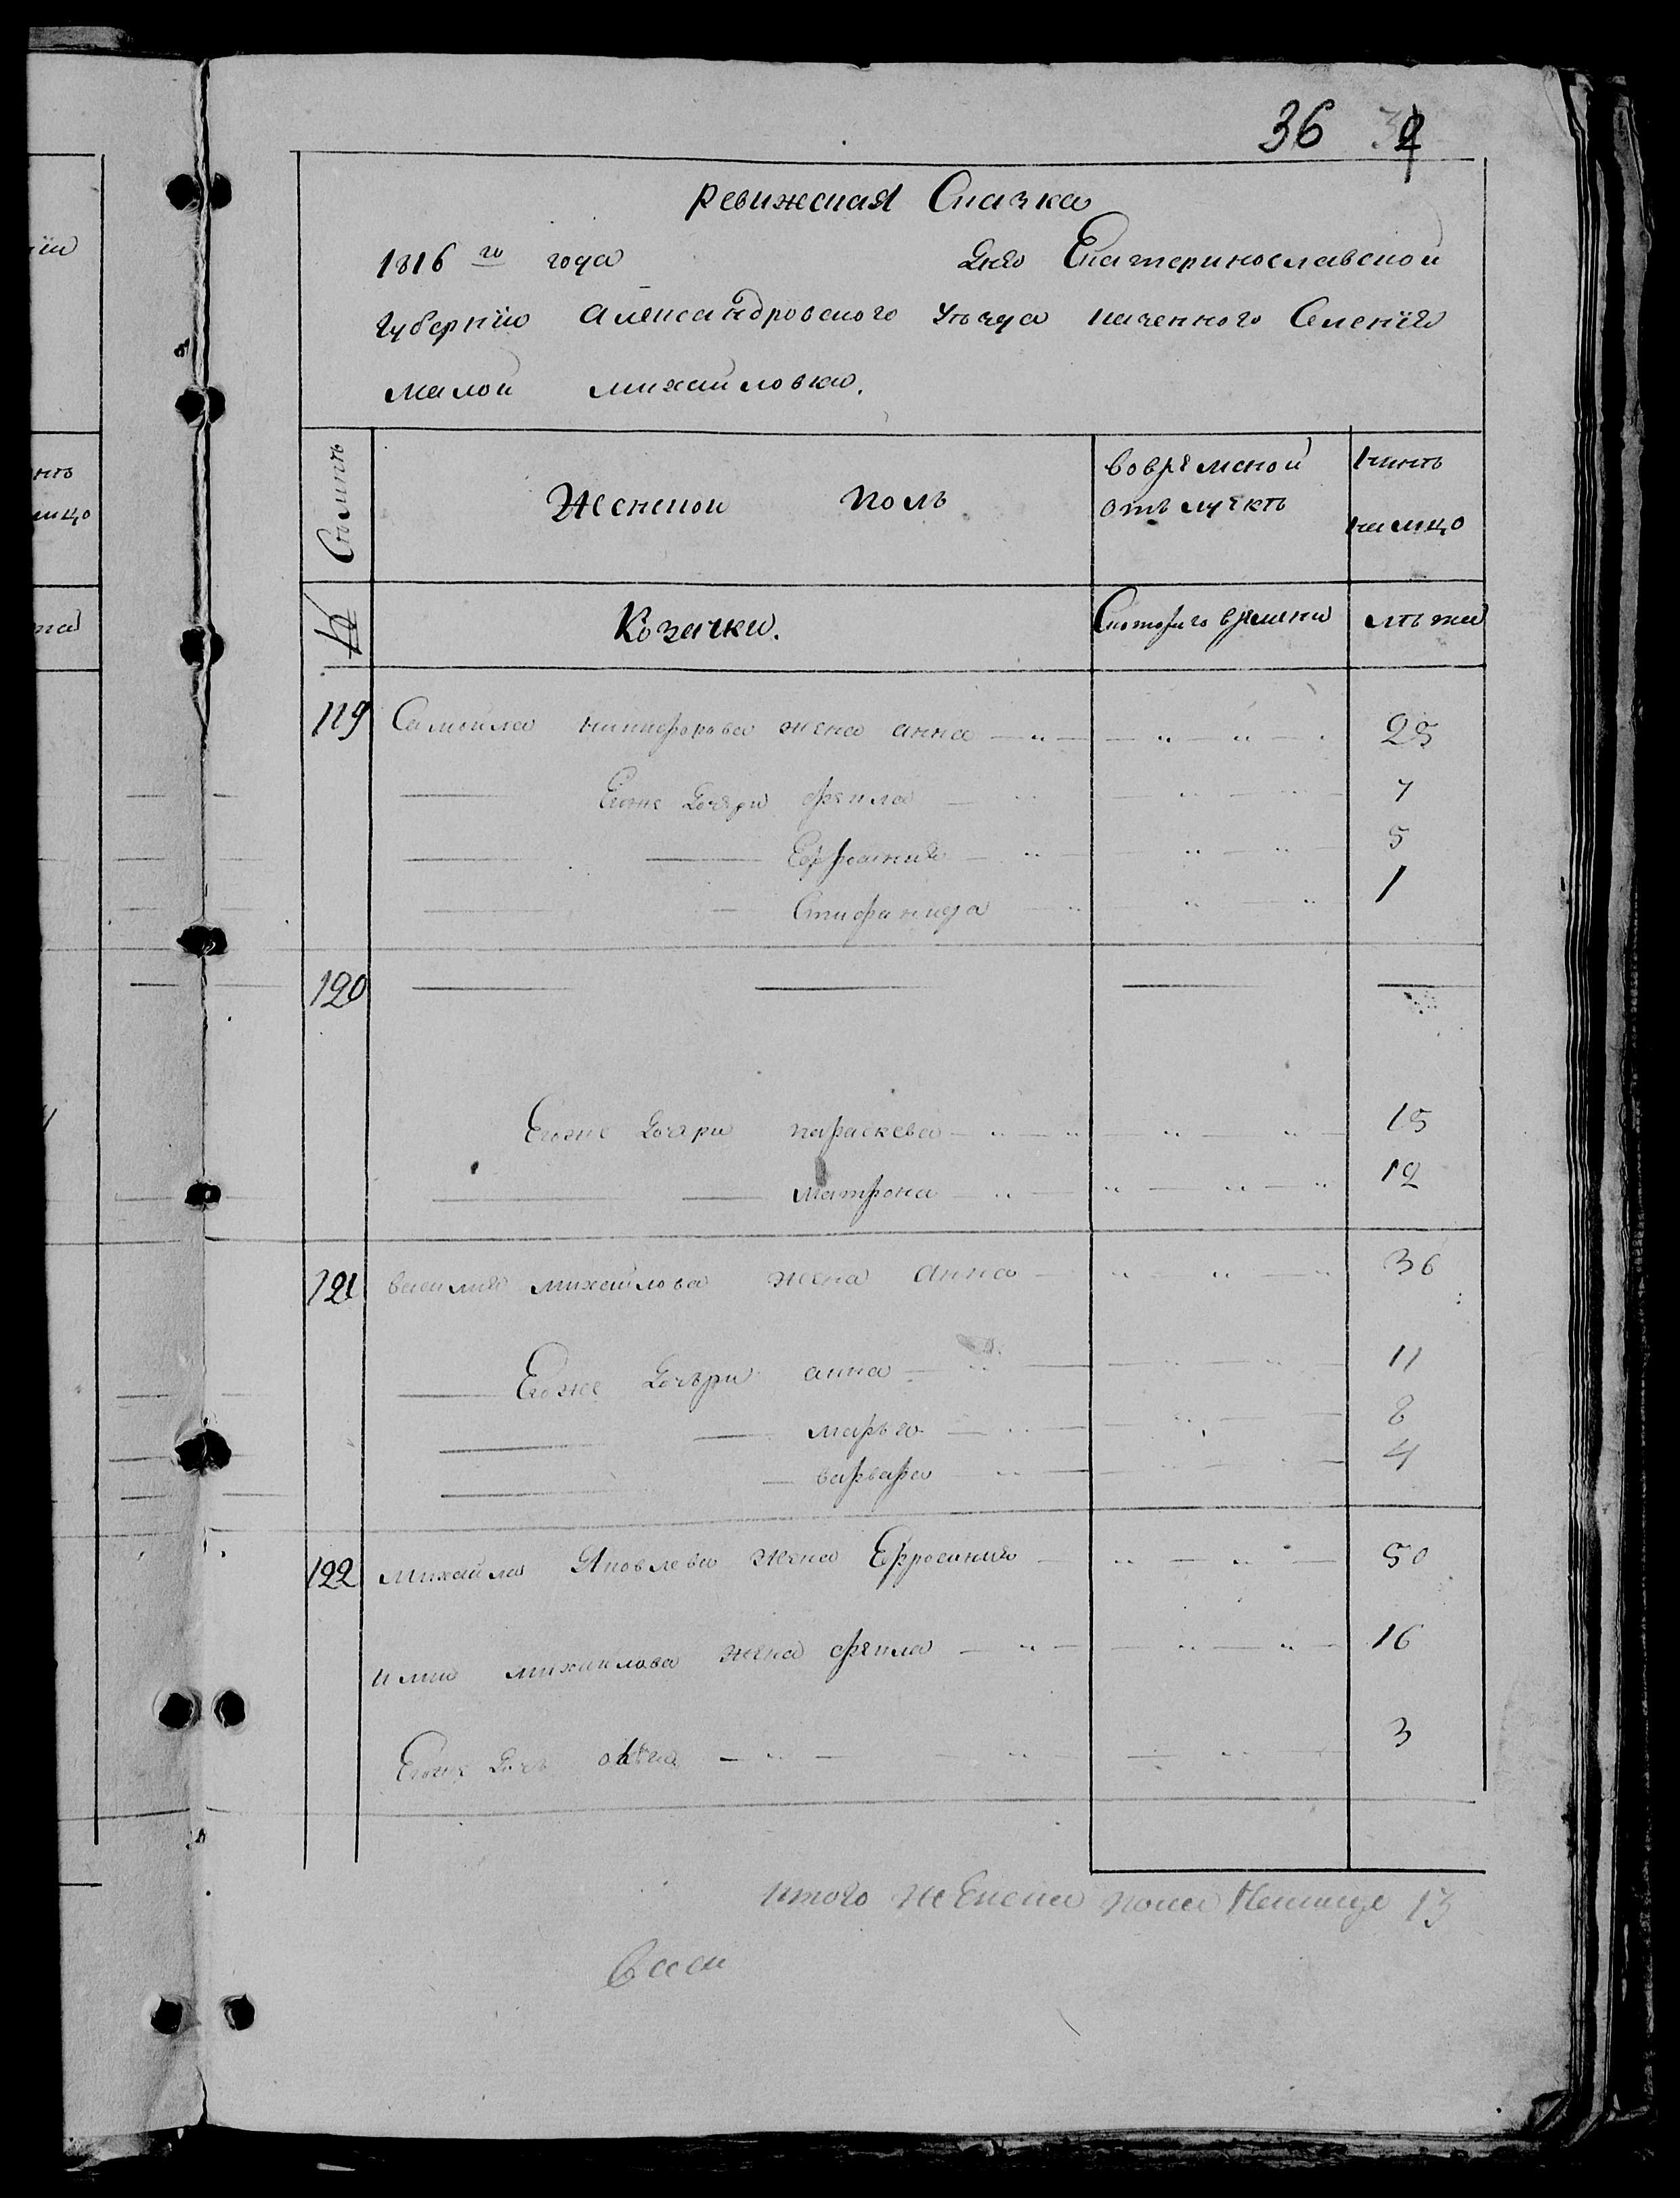 36
ревижская Сказка
1816 го года Дня Екатеринославской
губернїи Александровского уѣзда казенного Селенїя
малой михайловки.
Семьѣ
Женской поль
вовременой
отълучкѣ
нинѣ
налицо
№
Козачки.
Скоторого времени
лѣта
119 Самойла никифорова жена анна 25
Егоже Дочери фекла 7
Ефросиния 5
Стифанида 1
120
Егоже Дочери параскева 15
матрона 12
121 василия михайлова жена анна 36
Егоже Дочери анна 11
марья 8
варвара 4
122 михайла Яковлева жена Ефросиния 50
илии михайлова жена фекла 16
Егоже Дочь 3
итого женска пола налице 13